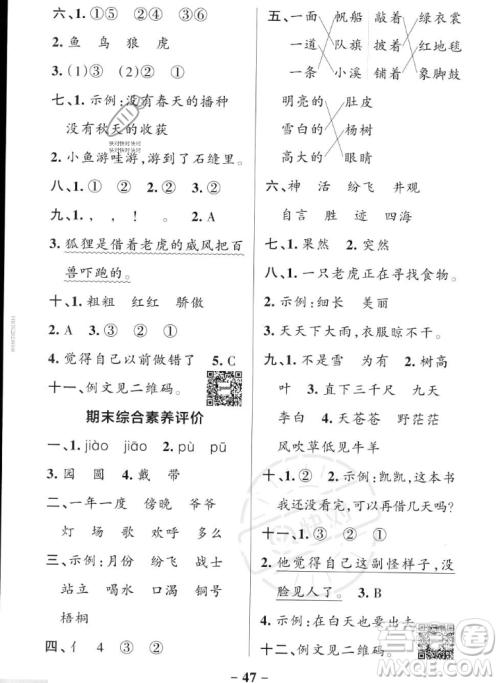 六、1.①⑤ ②④ ③⑥
2.鱼 鸟 狼 虎
3.(1)①③ (2)② ①
七、1.示例:没有春天的播种
没有秋天的收获
快对快对快对
快对快对快对
2.小鱼游哇游,游到了石缝里。
八、1.① ① ② 2.② ① ②
九、1., , ! 。 2.A
3.狐狸是借着老虎的威风把百
兽吓跑的。
十、1.粗粗 红红 骄傲
2.A 3.② ③ ①
4.觉得自己以前做错了 5.C
十一、例文见二维码。
期末综合素养评价
一、1.jiào jiāo 2.pù pū
3.园 圆 4.戴 带
二、一年一度 傍晚 爷爷
灯 场 歌 欢呼 多么
三、示例:月份 纷飞 战士
站立 喝水 口渴 铜号
梧桐
四、亻 4 ③ ②
五、一面 帆船 敲着 绿衣裳
一道 队旗 披着 红地毯
一条 小溪 铺着 象脚鼓
明亮的 肚皮
雪白的 杨树
高大的 眼睛
六、神 活 纷飞 井观
自言 胜 迹 四海
七、1.果然 2.突然
八、1.一只老虎正在寻找食物。
2.示例:细长 美丽
3.天天下大雨,衣服晾不干。
九、1.① ② 不 2.树高
叶 3.直下三千尺 九天
李白 4.天苍苍 野茫茫
风吹草低见牛羊
十、1.① ② 示例:凯凯,这本书
我还没看完,可以再借几天吗?
2.他觉得自己这副怪样子,没
脸见人了。 3.B
4.示例:在白天也要出去
十二、例文见二维码。
答案圈
MXQE.COM
– 47 –